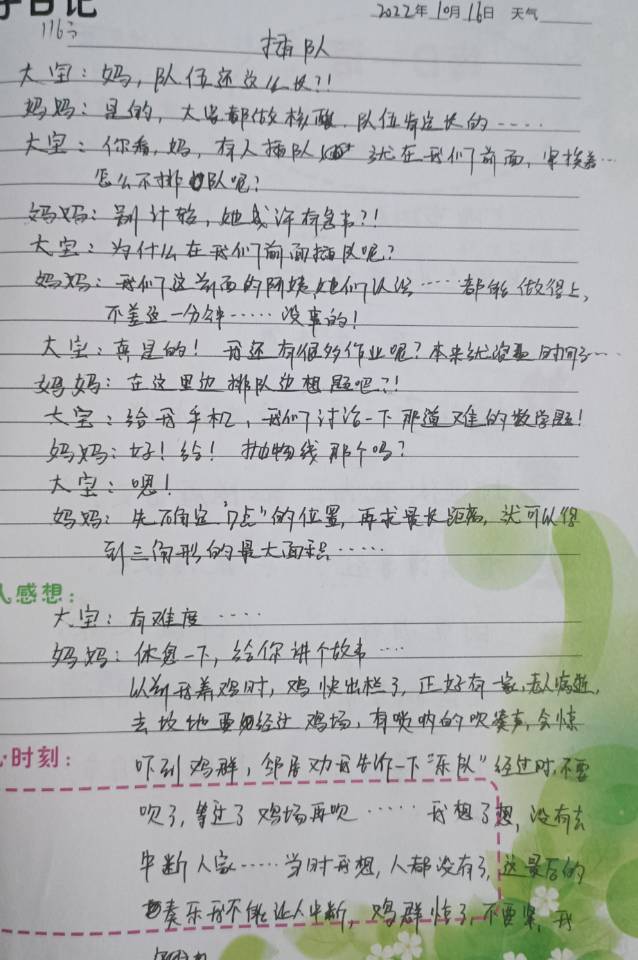 日记
2022年10月16日 天气
116
插队
大宝：妈，队伍还这么长?!
妈妈：是的，大家都做核酸，队伍肯定长的……
大宝：你看，妈，有人插队 就在我们前面，穿接着…
怎么不排队呢？
妈妈：别计较，她或许有急事?!
大宝：为什么在我们前面插队呢？
妈妈：我们这前面的阿姨，她们认得……都能做得上，
不差这一分钟……没事的！
大宝：真是的！我还有很多作业呢？本来就没 时间了…
妈妈：在这里边排队边想题吧?!
大宝：给我手机，我们讨论一下那道难的数学题！
妈妈：好！给！抛物线那个吗？
大宝：嗯！
妈妈：先确定“D点”的位置，再求最长距离，就可以得
到三角形的最大面积……
人感想：
大宝：有难度……
妈妈：休息一下，给你讲个故事…
以前我养鸡时，鸡快出栏了，正好有一家，老人病逝，
去坟地要 经过鸡场，有唢呐的吹奏声，会惊
心时刻：
吓到鸡群，邻居劝我告诉一下“乐队”经过时，不要
吹了，等过了鸡场再吹……我想了想，没有去
中断人家……当时我想，人都没有了，这最后的
奏乐我不能让人中断，鸡群惊了，不要紧，我